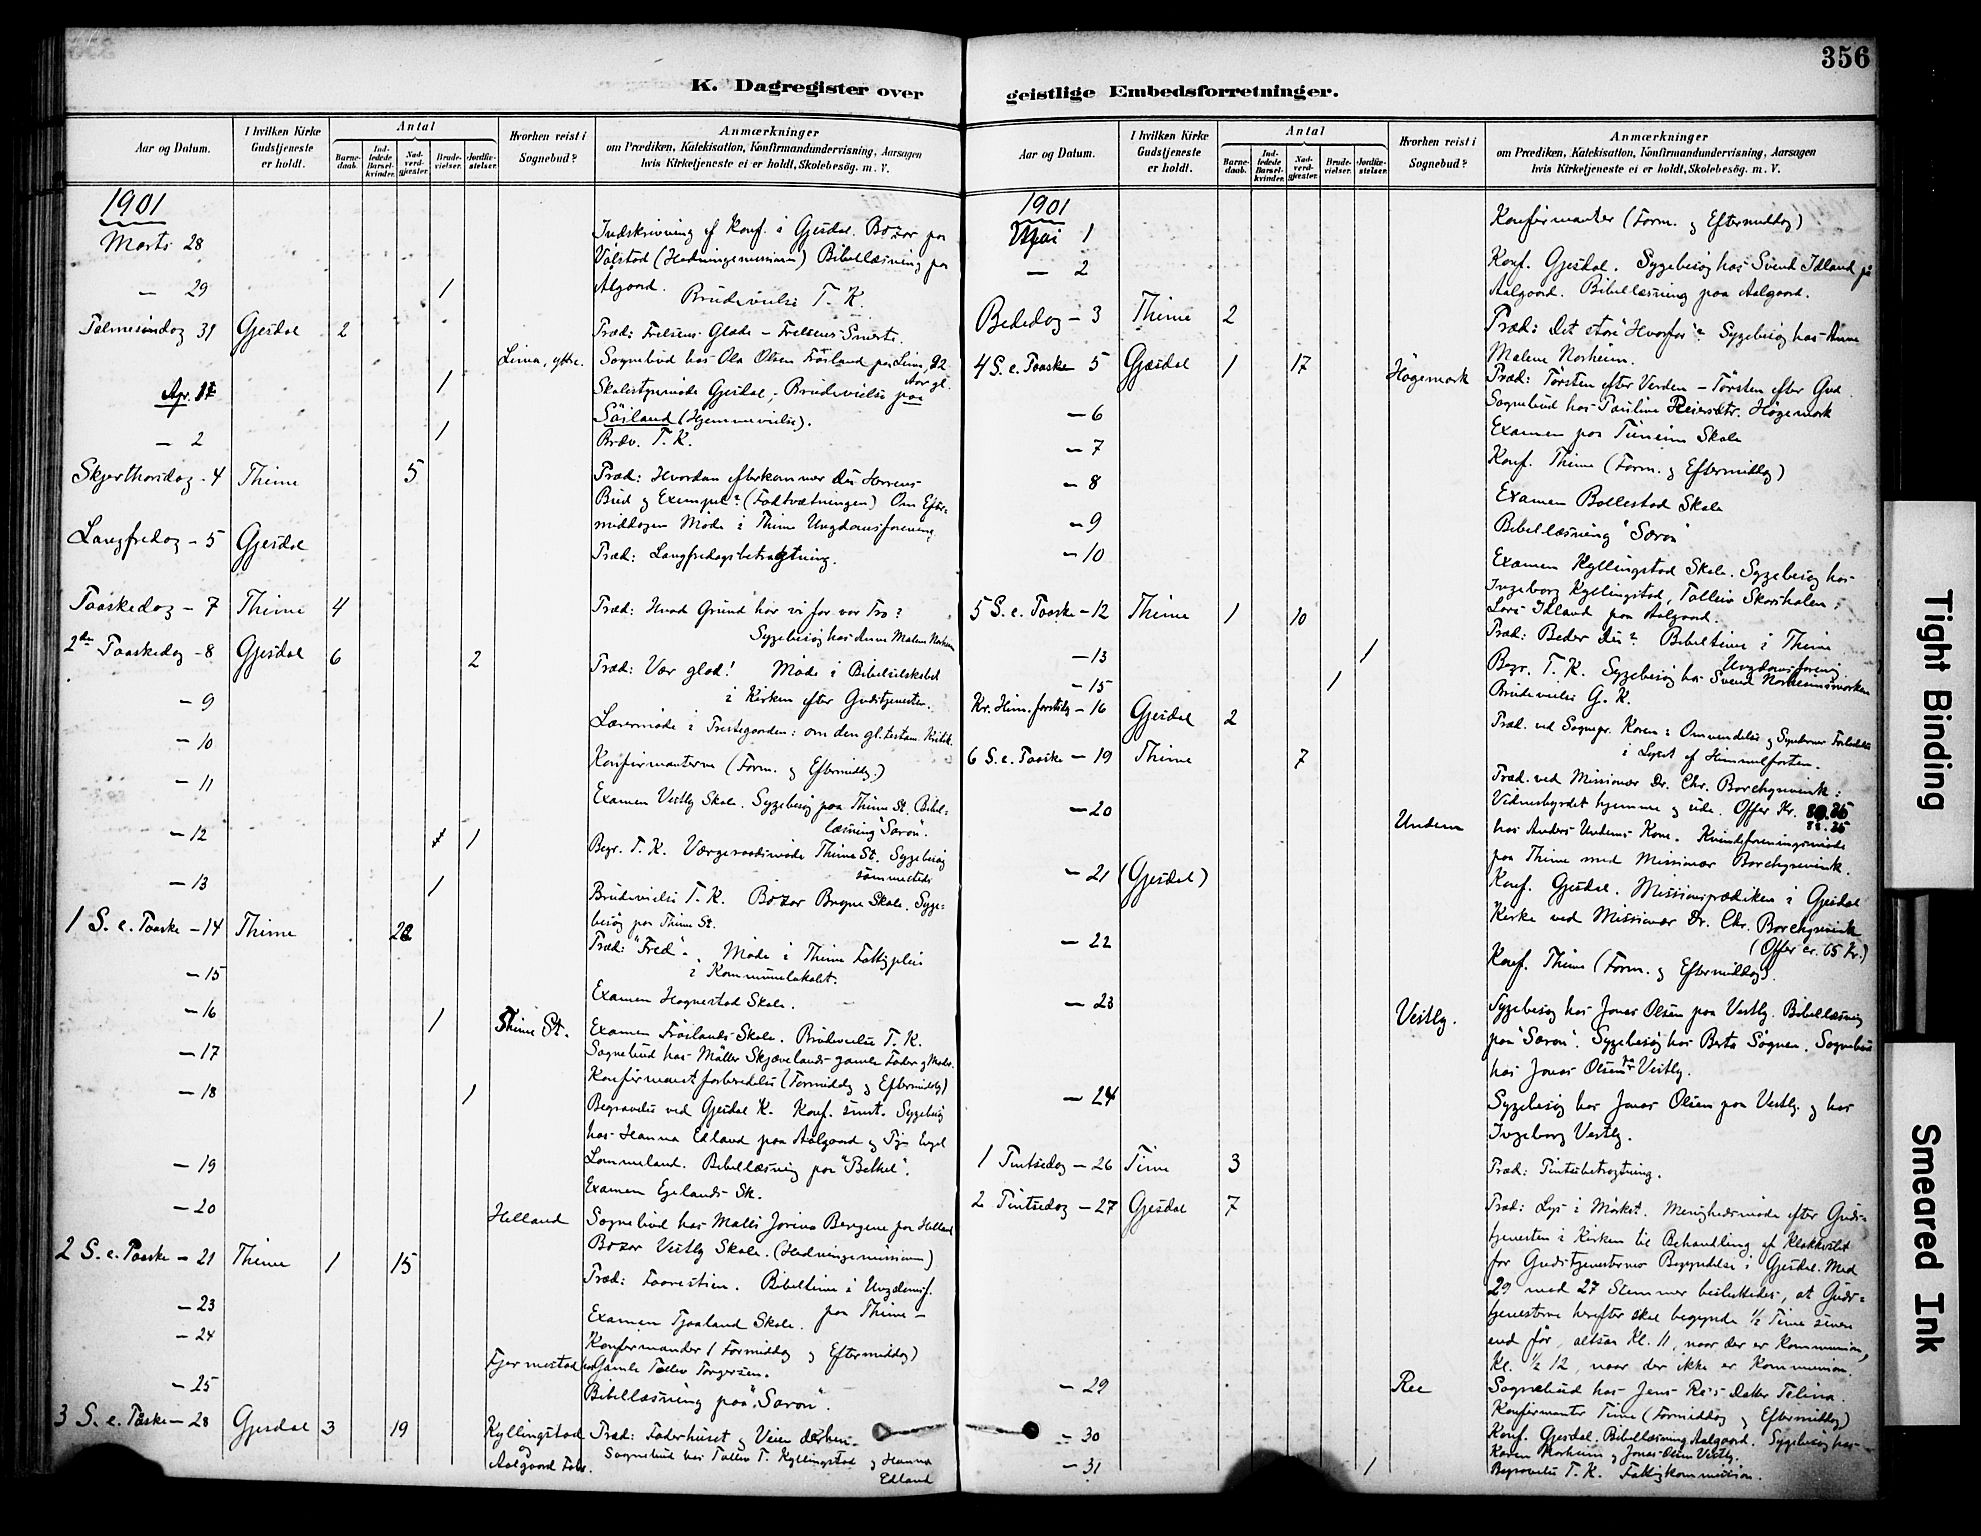 356
K. Dagregister over
Aar og Datum.
I hvilken Kirke Gudstjeneste er holdt.
Antal
Barne-daab.
Ind-ledede Barsel-kvinder.
Nad-verd-gjester.
Brude-vielser.
Jordfæ-stelser.
Hvorhen reist i Sognebud?
Anmærkninger
om Prædiken, Katekisation, Konfirmandundervisning, Aarsagen
hvis Kirketjeneste ei er holdt, Skolebesög. m. V.
1901
Marts 28 Indskrivning af Konf. i Gjesdal. Bazar paa
Valstad (Hedningemission) Bibellæsning paa
Aalgaard.
— 29 1 Brudevielse T. K.
Palmesöndag 31 Gjesdal 2 Præd: Frelsens Glæde – Frelsens Smerte.
Lima, ytre. Sognebud hos Ola Olsen Fröiland paa Lima, 92
Aar gl.
Apr. 1 1 Skolestyremöde Gjesdal. Brudevielse paa
Söiland (Hjemmevielse).
— 2 1 Brdv. T. K.
Skjærthorsdag - 4 Thime 5 Præd: Hvordan efterkommer du Herrens
Bud og Exempel? (Fodtvætningen) Om Efter-
middagen Möde i Thime Ungdomsforening
Langfredag - 5 Gjesdal Præd: Langfredagsbetragtning.
Paaskedag - 7 Thime 4 Præd: Hvad Grund har vi for vor Tro?
Sygebesög hos Anna Malene Norheim
2den Paaskedag - 8 Gjesdal 6 2 Præd: Vær glad! Möde i Bibelselskabet
i Kirken efter Gudstjenesten.
— 9 Lærermöde i Prestegaarden: om den gl. testam. Kritik.
— 10 Konfirmanterne (Form. og Eftermiddg.)
— 11 Examen Vestly Skole. Sygebesög paa Thime St. Bibel-
læsning "Saron".
— 12 1 Begr. T. K. Værgeraadsmöde Thime St. Sygebesög
sammesteds
— 13 1 Brudevielse T. K. Bazar Bryne Skole. Syge-
besög paa Thime St.
1 S. e. Paaske - 14 Thime 22 Præd: "Fred". Möde i Thime Fattigpleie
i Kommunelokalet.
— 15 Examen Hognestad Skole.
— 16 1 Thime St. Examen Fröilands Skole. Brudevielse T. K.
Sognebud hos Möller Skjævelands gamle Fader og Moder.
— 17 Konfirmantforberedelse (Formiddg og Eftermiddg)
— 18 1 Begravelse ved Gjesdal K. Konf. smst. Sygebesög
hos Hanna Edland paa Aalgaard og
Lommeland. Bibellæsning paa "Bethel".
— 19 Examen Egelands Sk.
— 20 Helland Sognebud hos Malli Jorine Bergene paa Helland
Bazar Vestly Skole. (Hedningemission)
2 S. e. Paaske - 21 Thime 1 15 Præd: Faarestien. Bibeltime i Ungdomsf.
paa Thime –
— 23 Examen Tjaaland Skole.
— 24 Konfirmander (Formiddag og Eftermiddag)
Fjermestad hos Gamle Tollev Torgersen.
— 25 Bibellæsning paa "Saron".
3 S. e. Paaske - 28 Gjesdal 3 19 Kyllingstad Præd: Faderhuset og Veien derhen.
og Aalgaard Fabr. Sognebud hos Tollev T. Kyllingstad og Hanna
Edland
geistlige Embedsforretninger.
Aar og Datum.
I hvilken Kirke Gudstjeneste er holdt.
Antal
Barne-daab.
Ind-ledede Barsel-kvinder.
Nad-verd-gjester.
Brude-vielser.
Jordfæ-stelser.
Hvorhen reist i Sognebud?
Anmærkninger
om Prædiken, Katekisation, Konfirmandundervisning, Aarsagen
hvis Kirketjeneste ei er holdt, Skolebesög. m. V.
1901
Mai 1 Konfirmanter (Form. og Eftermiddag)
— 2 Konf. Gjesdal. Sygebesög hos Svend Idland på
Aalgaard. Bibellæsning paa Aalgaard.
Bededag - 3 Thime 2 Præd: Det store "Hvorfor"? Sygebesög hos Anne
Malene Norheim.
4 S. e. Paaske 5 Gjesdal 1 17 Högemork Præd: Törsten efter Verden – Törsten efter Gud
Sognebud hos Pauline Reiersdtr. Högemork
— 6 Examen paa Tunheim Skole
— 7 Konf. Thime (Form. og Eftermiddg)
— 8 Examen Bollestad Skole
— 9 Bibellæsning "Saron"
— 10 Examen Kyllingstad Skole. Sygebesög hos
Ingeborg Kyllingstad, Tolleiv Skorshalen,
Lars Idland paa Aalgaard.
5 S. e. Paaske - 12 Thime 1 10 Præd: Beder du? Bibeltime i Thime
Ungdomsforening
— 13 1 Begr. T. K. Sygebesög hos Svend Norheimsmarken
— 15 1 Brudevielse G. K.
Kr. Him. fartsdg - 16 Gjesdal 2 Præd. ved Sognepr. Koren: Omvendelse og Syndernes Forladelse
i Lyset af Himmelfarten.
6 S. e. Paaske - 19 Thime 7 Præd. ved Missionær Dr. Chr. Borchgrevink:
Vidnesbyrdet hjemme og ude. Offer Kr.
88.25
— 20 Undem hos Anders Undems Kone. Kvindeforeningsmöde
paa Thime med Missionær Borchgrevink.
— 21 (Gjesdal) Konf. Gjesdal. Missionsprædiken i Gjesdal
Kirke ved Missionær Dr. Chr. Borchgrevink
(Offer cr. 65 Kr.)
— 22 Konf. Thime (Form. og Eftermiddag).
— 23 Vestly. Sygebesög hos Jonas Olsen paa Vestly. Bibellæsning
paa "Saron". Sygebesög hos Berta Sognen. Sognebud
hos Jonas Olsen Vestly.
— 24 Sygebesög hos Jonas Olsen paa Vestly. og hos
Ingeborg Vestly.
1 Pintsedag - 26 Time 3 Præd: Pintsebetragtning.
2 Pintsedag - 27 Gjesdal 7 Præd: Lys i Mörket. Menighedsmöde efter Guds-
tjenesten i Kirken til Behandling af Klokkeslet
for Gudstjenesternes Begyndelse i Gjesdal. Med
29 mod 27 Stemmer besluttedes, at Guds-
tjenesterne herefter skal begynde 1/2 Time senere
end för, altsaa Kl. 11, naar der er Kommunion,
Kl. 1/2 12, naar der ikke er Kommunion.
— 29 Ree Sognebud hos Jens Re's Datter Telina.
Konfirmanter Time (Formiddag og Eftermiddag)
— 30 Konf. Gjesdal. Bibellæsning Aalgaard. Sygebesög hos
Karen Norheim og Jonas Olsen Vestly.
— 31 1 Begravelse T. K. Fattigkommission.
Tight Binding
Smeared Ink